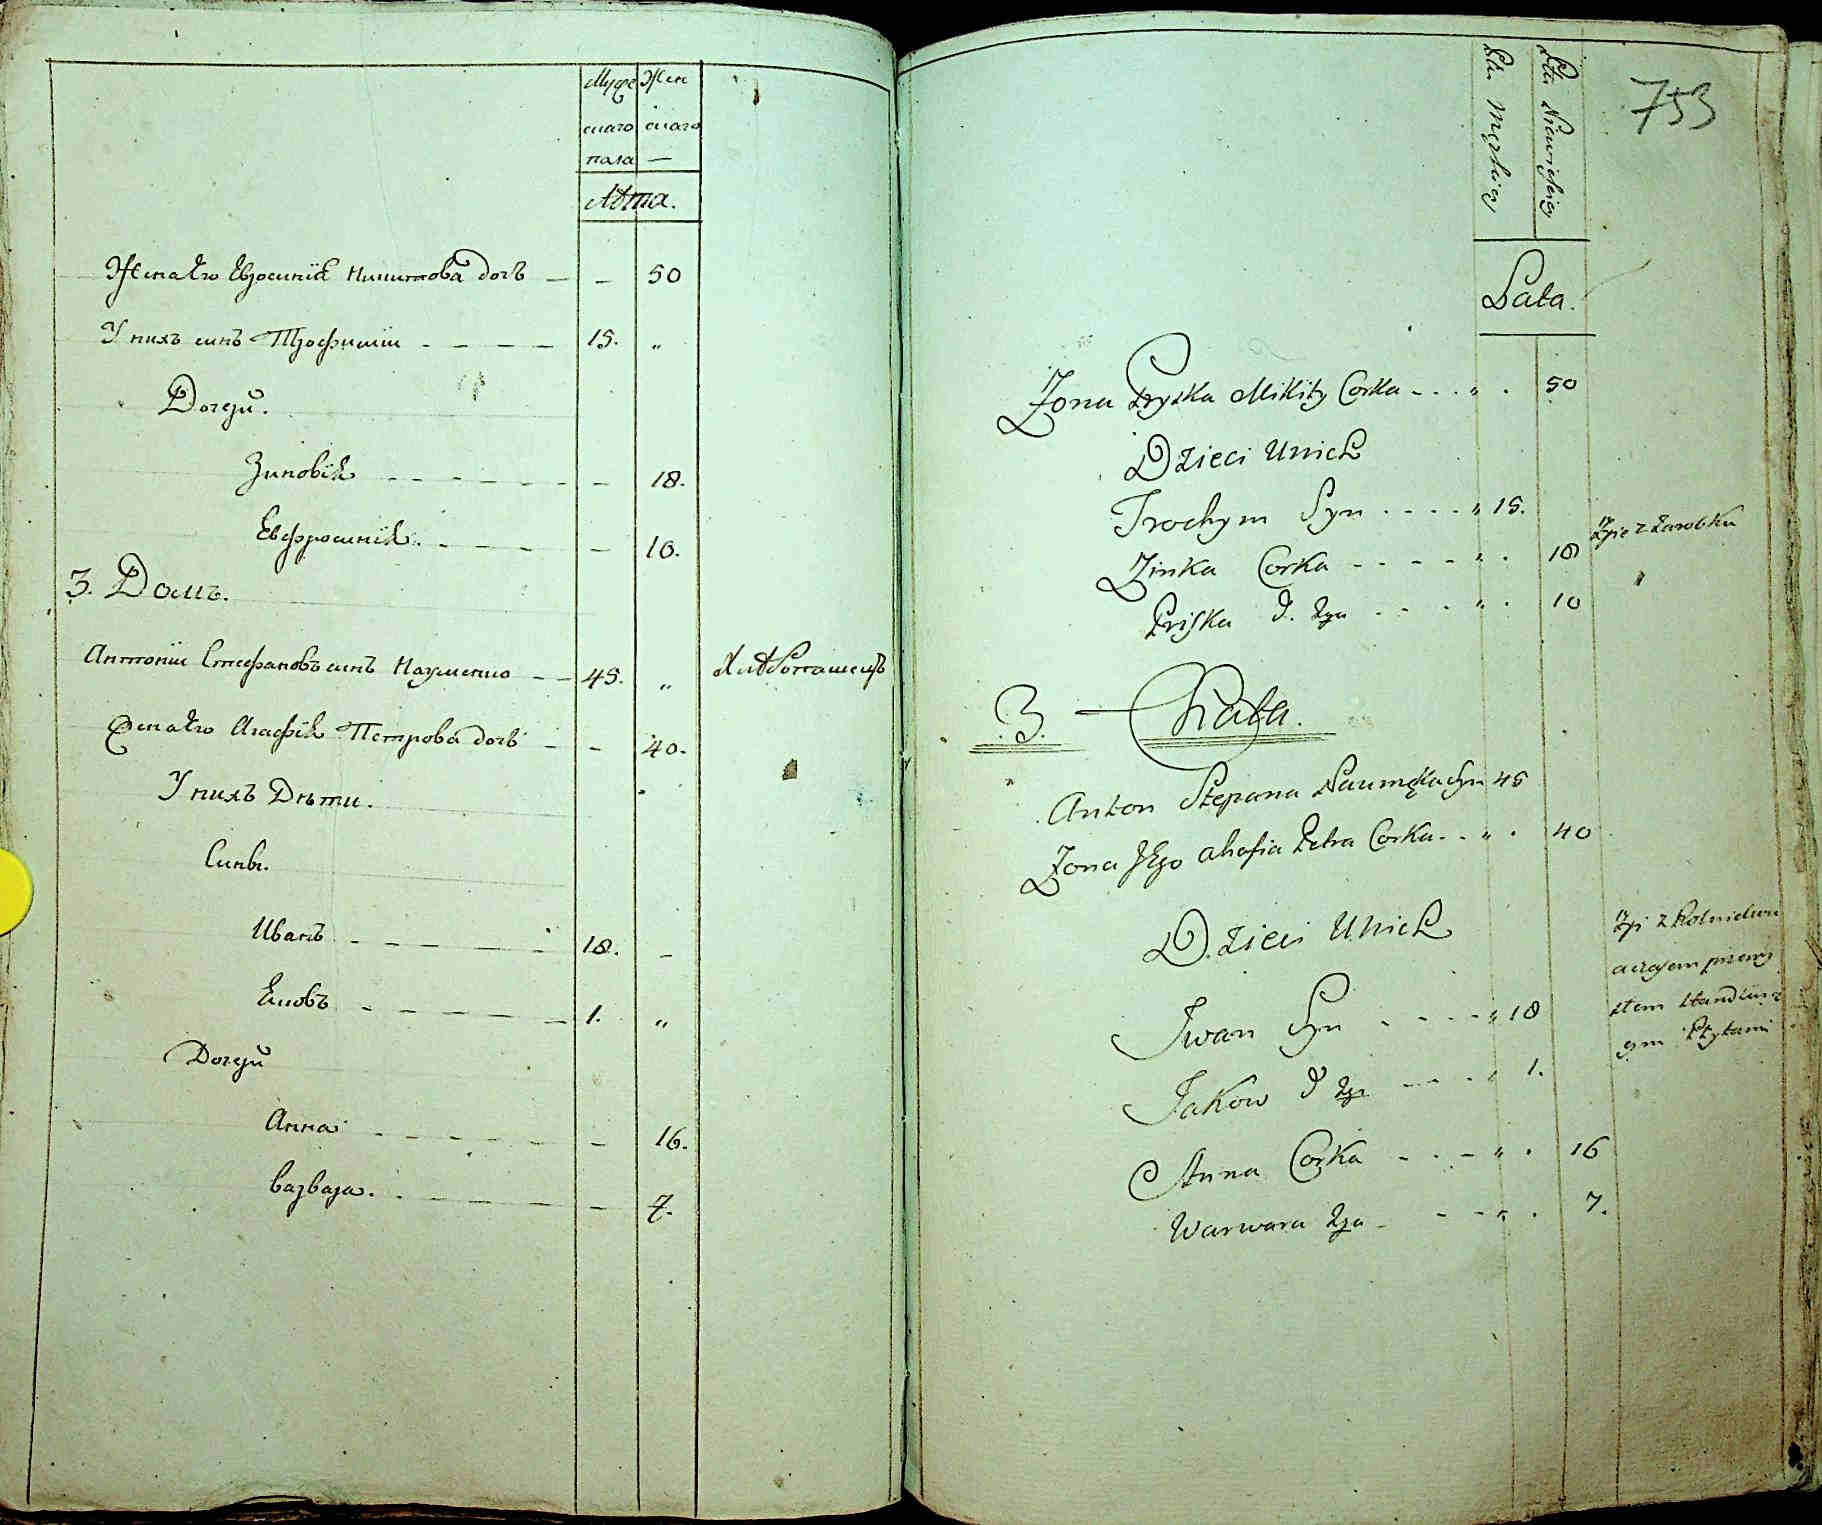 Муже Жен
скаго скаго
пола —
Лѣта.
Жена Его Евросинія Никитова дочь — — 50
У нихъ синъ Трофимій - - - - 15. „
Дочери.
Зиновія - - - - - - 18.
Евфросинія. - - - - - 10.
3. Домъ.
Антоній Стефановъ синъ Науменко - - 45. „ Хлѣбопашецъ
Жена Его Агафія Петрова дочь - - 40.
У нихъ Дѣти.
Сины.
Иванъ - - - - - - 18. -
Яковъ - - - - - - 1. „
Дочери
Анна - - - - - - 16.
Варвара. - - - - - - 7.
753
Płci Męzkiey
Płci Niewieściey
Lata.
Zona Pryska Mikity Corka - - - „ . 50
Dzieci Unich
Trochym Syn - - - - „ 15.
Zinka Corka - - - - „ . 18 Żyie z Zarobku
Priska d. - - - „ . 10
3. — Chata.
Anton Stepana Naumęka Syn 45
Zona Jego Ahafia Petra Corka - - „ . 40
Dzieci Unich
Iwan Syn - - - - „ 18
Jakow - - - „ 1.
Anna Corka - - - „ . 16
Warwara - - - „ . 7.
Żyi z Rolnictwa